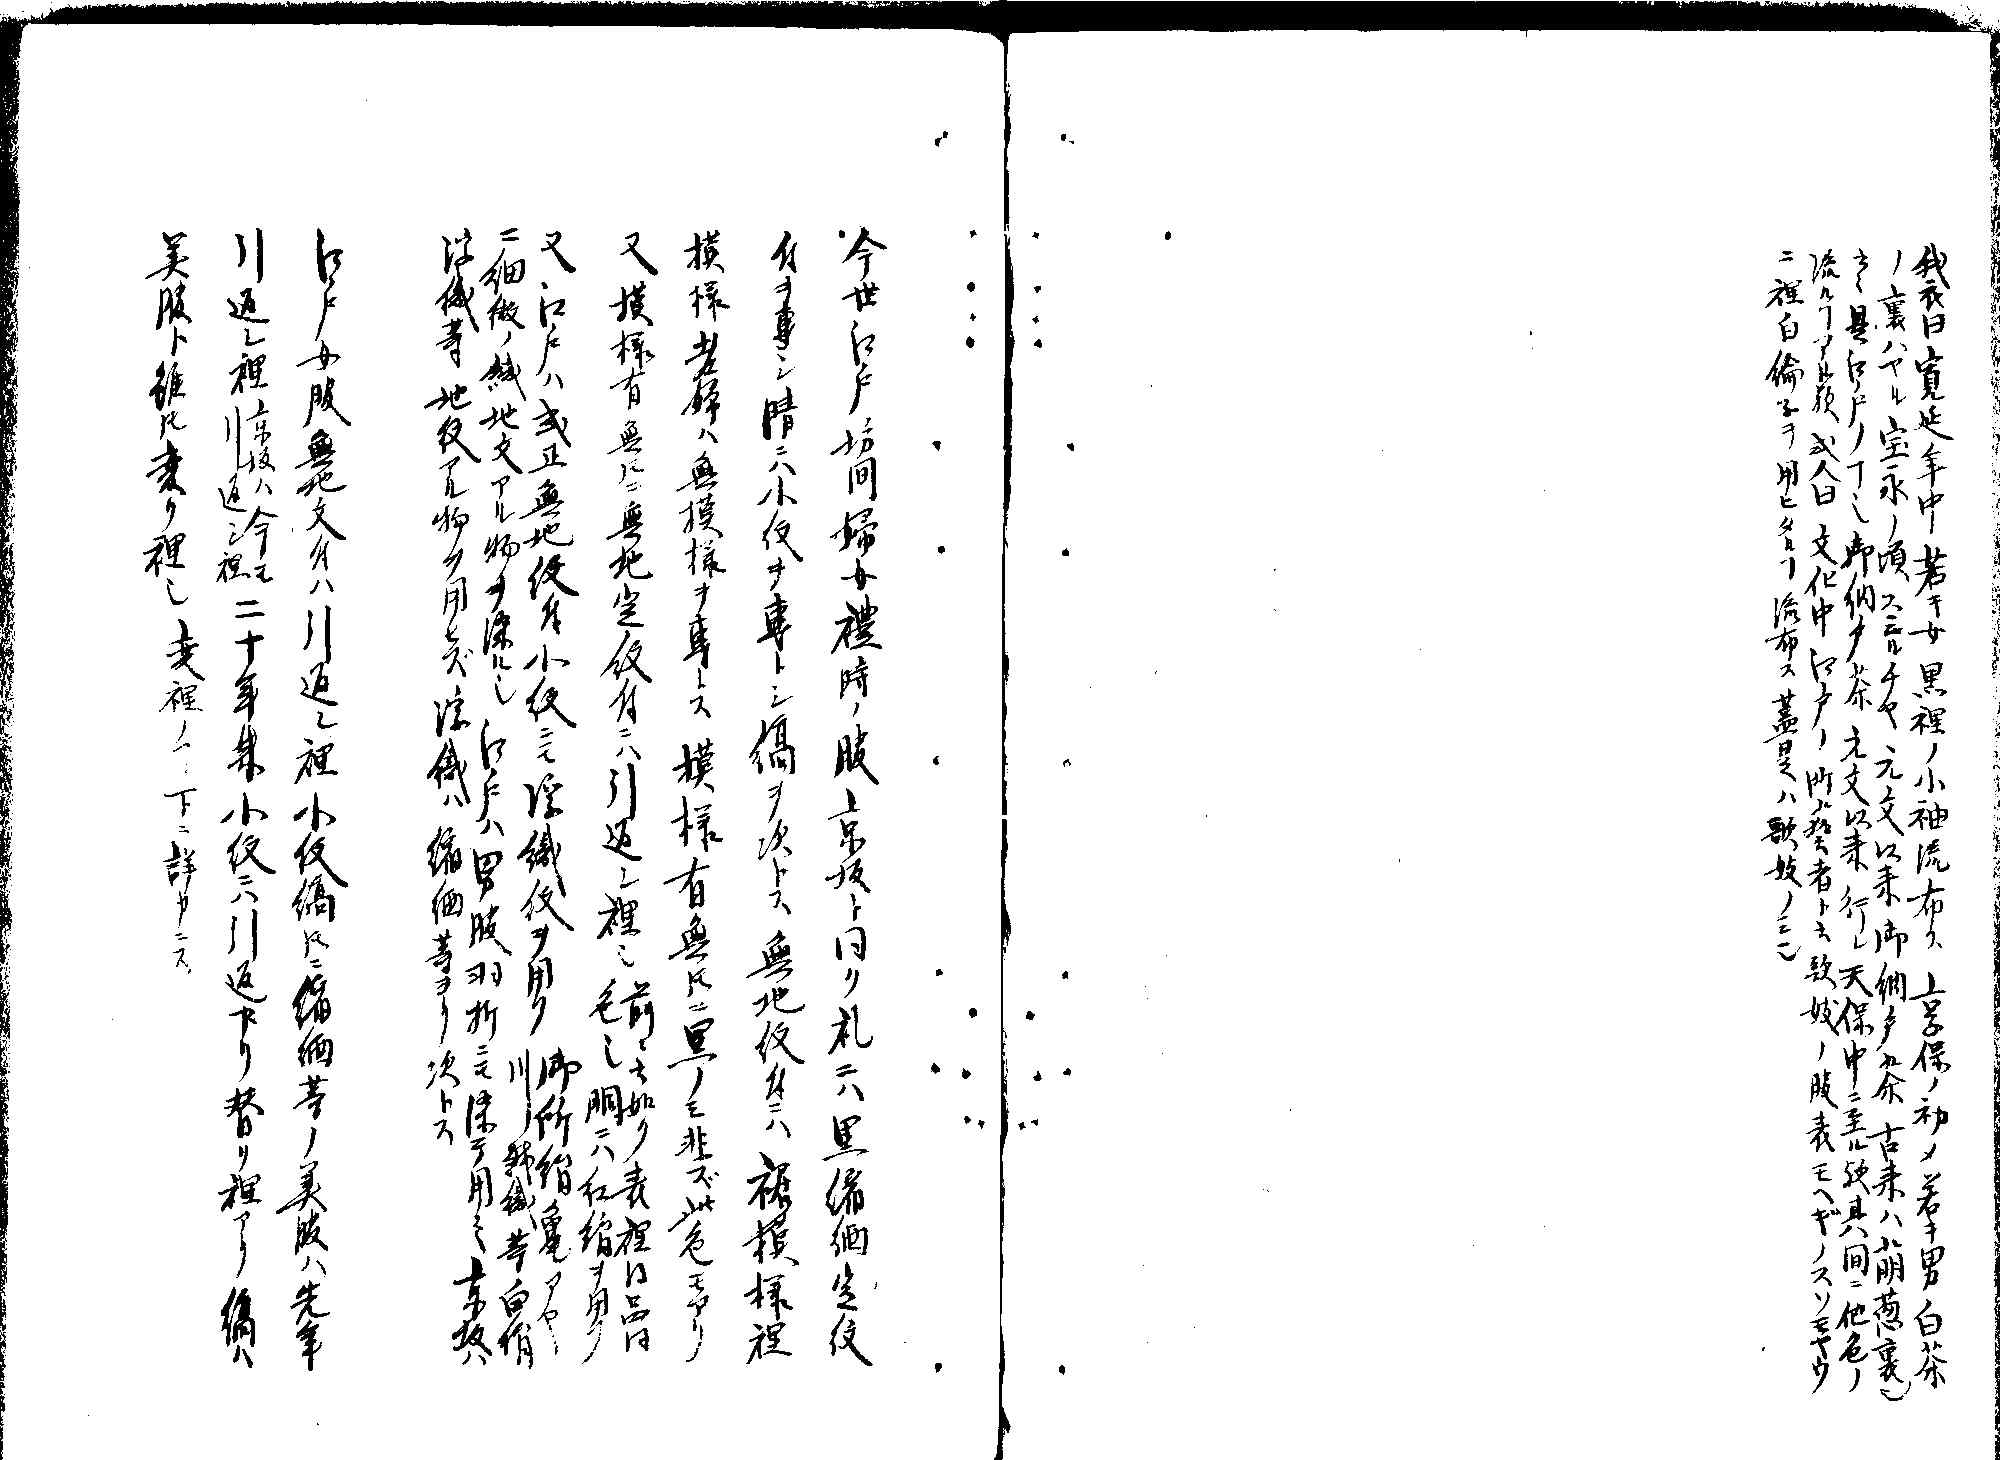 我衣曰寛延年中若キ女黒裡ノ小袖流布ス 享保ノ初メ若キ男白茶
ノ裏ハヤル宝永ノ頃スミルチヤ元文以来御納戸茶古来ハ萌葱裏也
云々是江戸ノコト也御納戸茶元文以来行レ天保中ニ至ル歟其間ニ他色ノ
流ルコトアル歟或人曰文化中江戸ノ所謂藝者ト云歌妓ノ服表モヘギノスソモヤウ
ニ裡白綸子ヲ用ヒタルコト流布ス蓋是ハ歌妓ノミ也
今世江戸坊間婦女禮時ノ服京坂ト同ク礼ニハ黒縮緬定紋
付ヲ専トシ晴ニハ小紋ヲ専トシ縞ヲ次トス無地紋付ニハ裾模様裡
模様老婦ハ無模様ヲ専トス模様有無トモニ黒ノミ非ズ此色モアリ
又模様有無トモニ無地定紋付ニハ引返シ裡也 前ニ云如ク表裡同品同
色也胴ニハ紅絹ヲ用フ
又江戸ハ或正無地紋付小紋ニモ浮織紋ヲ用フ 御所絹亀アヤ
川越織等白絹
ニ細微ノ織地文アル物ヲ染ル也江戸ハ男服羽折ニモ染テ用之京坂ハ
浮織等地紋アル物ヲ用ヒズ浮織ハ縮緬等ヨリ次トス
江戸女服無地文付ハ引返シ裡小紋縞トモニ縮緬等ノ美服ハ先年
引返シ裡 京坂ハ今モ
引返シ裡 二十年来小紋ニハ引返アリ替リ裡アリ縞ハ
美服ト雖トモ変リ裡也変裡ノコト下ニ詳カニス